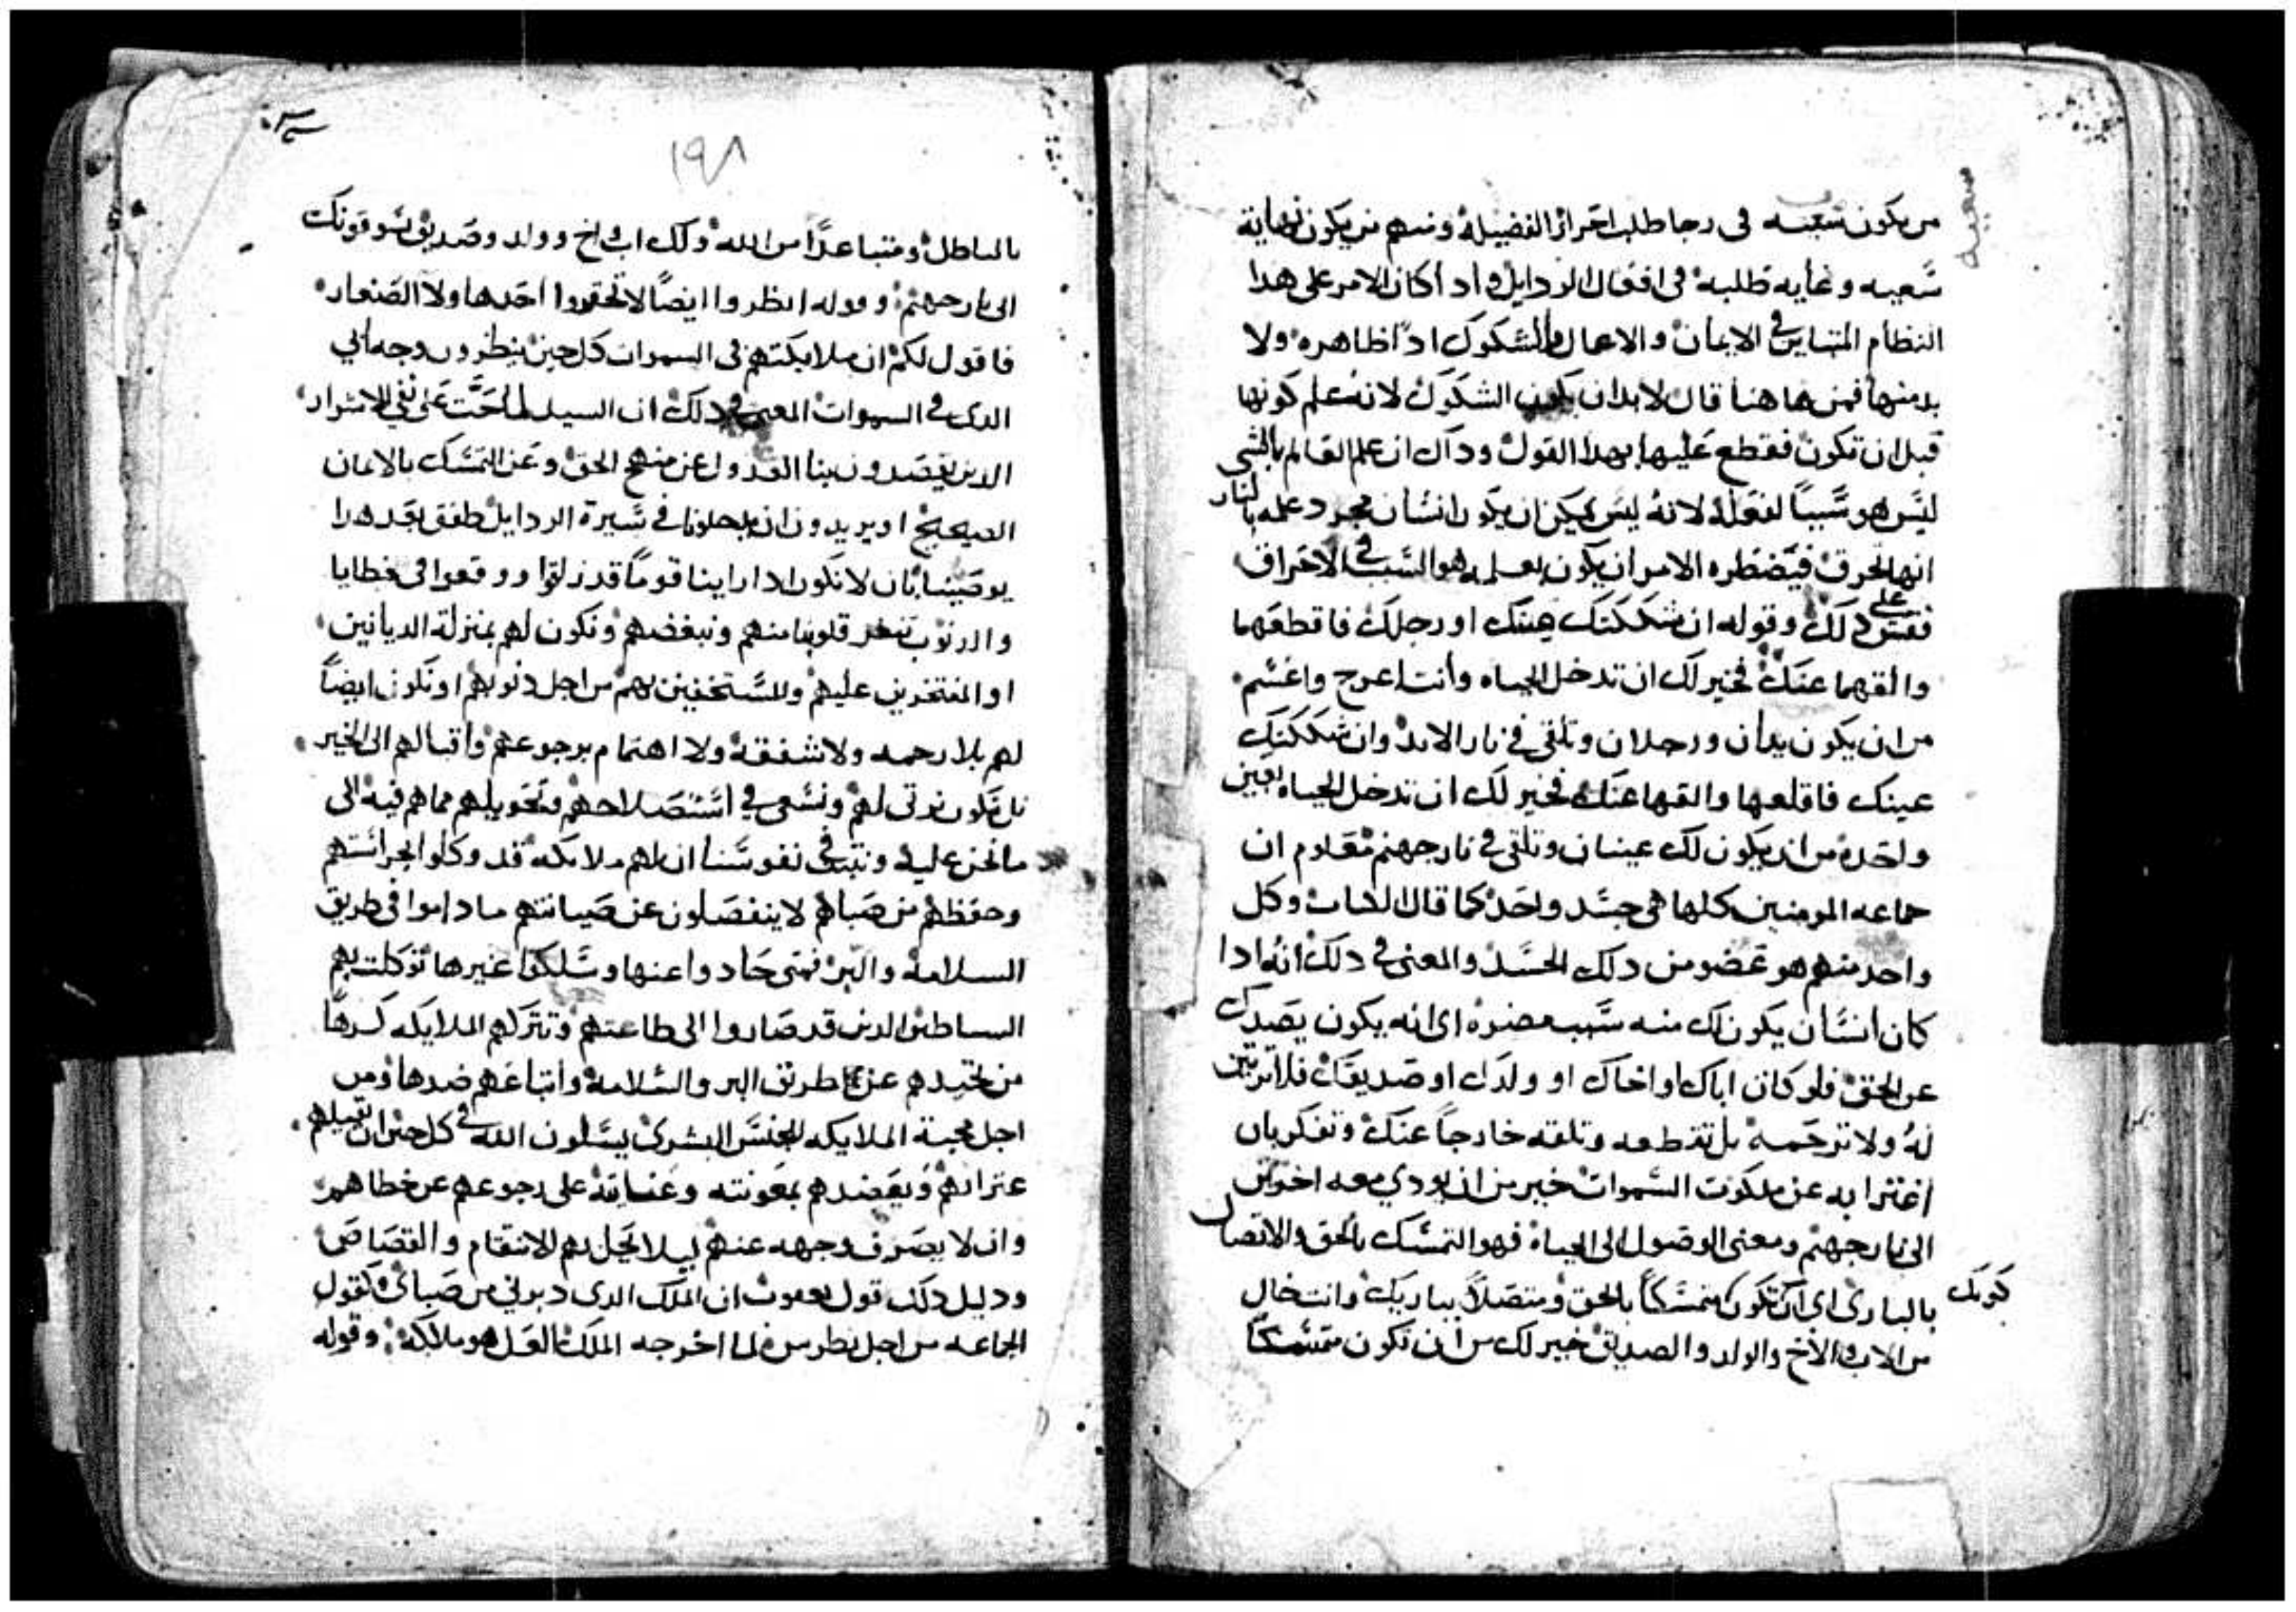 من يكون سعيه في رجا طلب احراز الفضيلة ومنهم من يكون نهاية
سعيه وغايه طلبه في افعال الردايل واد أكان الامر على هدا
النظام المتباين في الايمان والاعمال والشكوك ادًا ظاهره ولا
بد منها فمن هاهنا قال لابد ان يكون الشكوك لانه علم كونها
قبل ان تكون فقطع عليها بهدا القول ودال ان علم العالم بالشي
ليس هو سببًا لفعله لانه ليس يمكن ان يكون انسان مجرد علمه بالنار
انها تحرق فيضطره الامر ان يكون بعلمه هو السبب في الاحراق
فقس على دلك وقوله ان شككتك يدك او رجلك فاقطعهما
والقهما عنك فخير لك ان تدخل الحياه وأنت اعرج واعسم
من ان يكون يدان ورجلان وتلقى في نار الابد وان شككتك
عينك فاقلعها والقها عنك فخير لك ان تدخل الحياه بعين
واحده من ان يكون لك عينان وتلقى في نار جهنم معلوم ان
جماعه المومنين كلها هى جسد واحد كما قال الكتاب وكل
واحد منهم هو عضو من دلك الجسد والمعنى في دلك انه ادا
كان انسان يكون لك منه سبب مضره اى انه يكون يصدك
عن الحق فلو كان اباك او اخاك او ولدك او صديقك فلا ترثين
له ولا ترحمه بل تقطعه وتلقه خارجاً عنك وتفكر بان
اغترابه عن ملكوت السموات خير من ان يودي معه اخرين
الى نار جهنم ومعنى الوصول الى الحياه فهو التمسك بالحق والاتصال
بالبارى اى ان تكون متمسكاً بالحق ومتصلاً بباريك وانت خال
كونك
من الاب والأخ والولد والصديق خير لك من أن تكون متمسكاً
١٩٨
بالباطل ومتباعدًا من الله ولك اب واخ وولد وصديق يسوقونك
الى نار جهنم وقوله انظروا ايضًا لا تحقروا احد هاولا الصغار
فاقول لكم ان ملايكتهم في السموات كل حين ينظرون وجه ابي
الدى في السموات المعنى في دلك ان السيد لما حت على نفي الاشرار
الدين يقصدون بنا العدول عن منهج الحق وعن التمسك بالامان
الصحيح او يريدون ان يدخلونا في سيرة الردايل طفق بعد هدا
يوصينا بان لا نكون ادا راينا قوماً قد زلقوا ووقعوا في خطايا
والدنوب تنفر قلوبنا منهم ونبغضهم ونكون لهم بمنزلة الديانين
او المفتخرين عليهم والمستخفين بهم من اجل دنوبهم او نكون ايضاً
لهم بلا رحمه ولا شفقه ولا اهتمام برجوعهم واقبالهم الى الخير
بل نكون نرتى لهم ونسعى في استصلاحهم وتحويلهم مما هم فيه الى
ما نحن عليه ونثبت في نفوسنا ان لهم ملايكه قد وكلوا بحراستهم
وحفظهم من صباهم لا ينفصلون عن صيانتهم ما داموا في طريق
السلامه والبر فمتى حادوا عنها وسلكوا غيرها توكلت بهم
الشياطين الدين قد صاروا الى طاعتهم وتتركهم الملايكه كرهًا
من تحيدهم عن طريق البر والسلامه واتباعهم ضدها ومن
اجل محبة الملايكه للجنس البشرى يسلون الله في كل حين ان يقيلهم
عتراتهم ويعضدهم بمعونته وعنايته على رجوعهم عن خطاهم
وان لا يصرف وجهه عنهم ليلا يحل بهم الانتقام والقصاص
ودليل دلك قول يعقوب ان الملك الدى دبرني من صباى وكقول
الجماعه من اجل بطرس لما اخرجه الملك لعل هو ملاكه وقوله